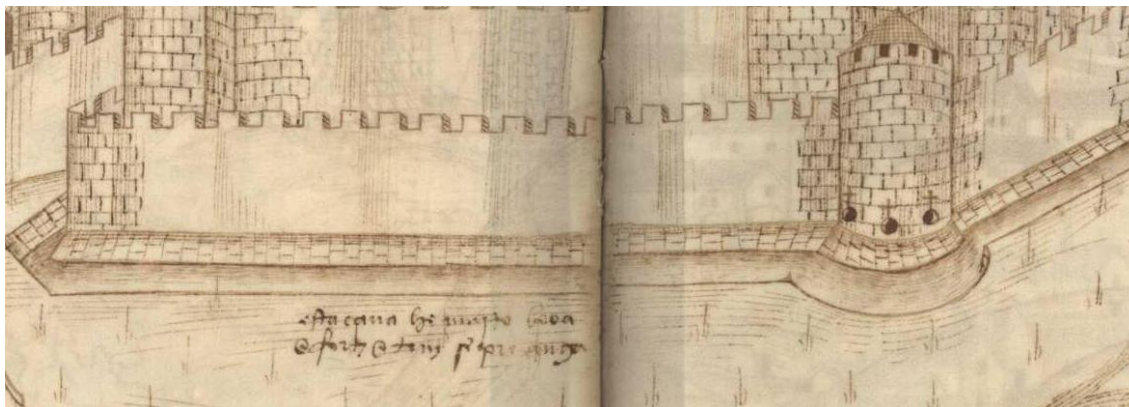 esta caua he muyto booa
& forte & tem sẽpre auga